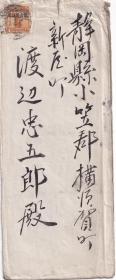 静岡縣小笠郡横須賀町
新屋町
渡辺忠五郎殿